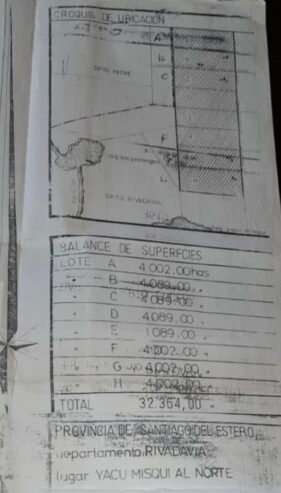 CROQUIS DE UBICACION
A
b
c
DPTO MITRE
f
h
DPTO RIVADAVIA
BALANCE DE SUPERFCIES
LOTE A 4.002.00 has
" B 4.089.00 "
" C 4.089.00 "
" D 4.089.00 "
" E 4.089.00 "
" F 4.002.00 "
" G 4.002.00 "
" H 4.002.00 "
TOTAL 32.364,00 "
PROVINCIA DE SANTIAGO DEL ESTERO
departamento RIVADAVIA
lugar YACU MISQUI AL NORTE